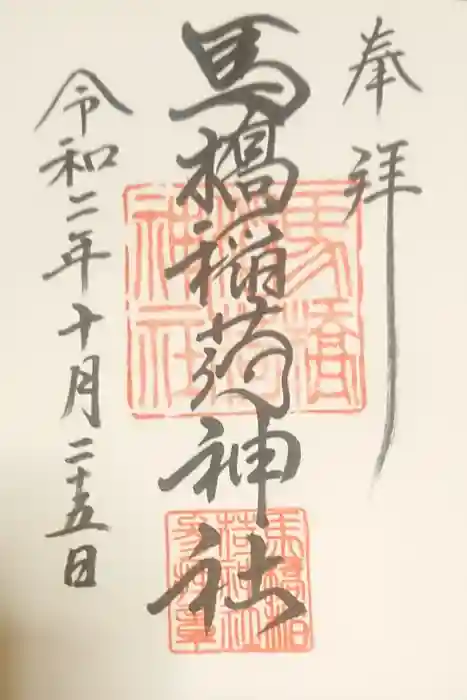 奉拝
馬橋稲荷神社
令和二年十月二十五日
馬橋
稲荷
神社